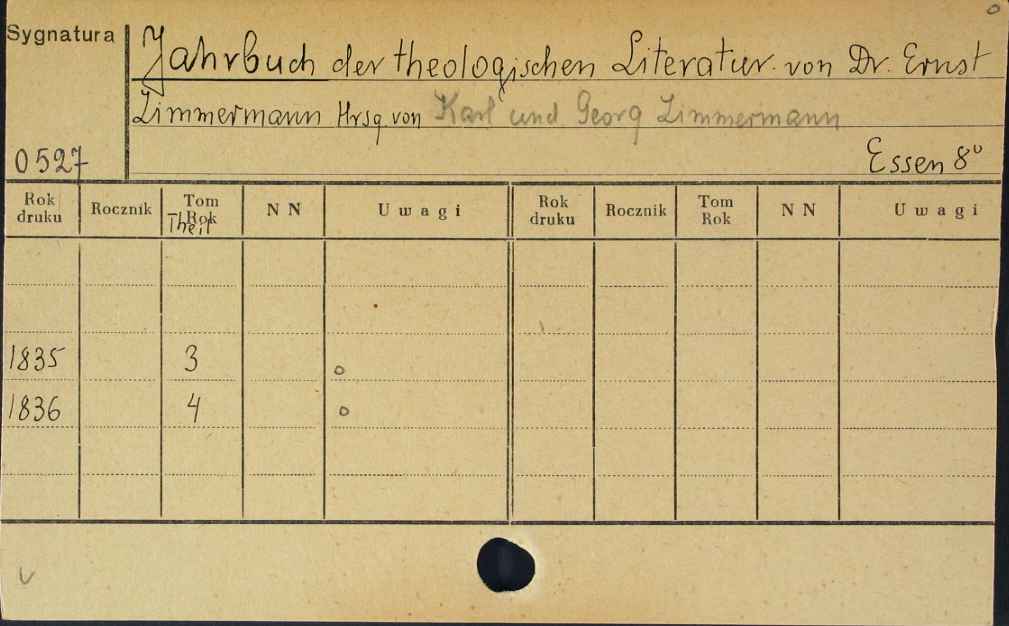 Sygnatura
Jahrbuch der theologischen Literatur von Dr. Ernst
Zimmermann Hrsg. von Karl und Georg Zimmermann
0527
Essen 8°
Rok druku Rocznik Tom Rok Theil N N Uwagi Rok druku Rocznik Tom Rok N N Uwagi
1835 3 o
1836 4 o